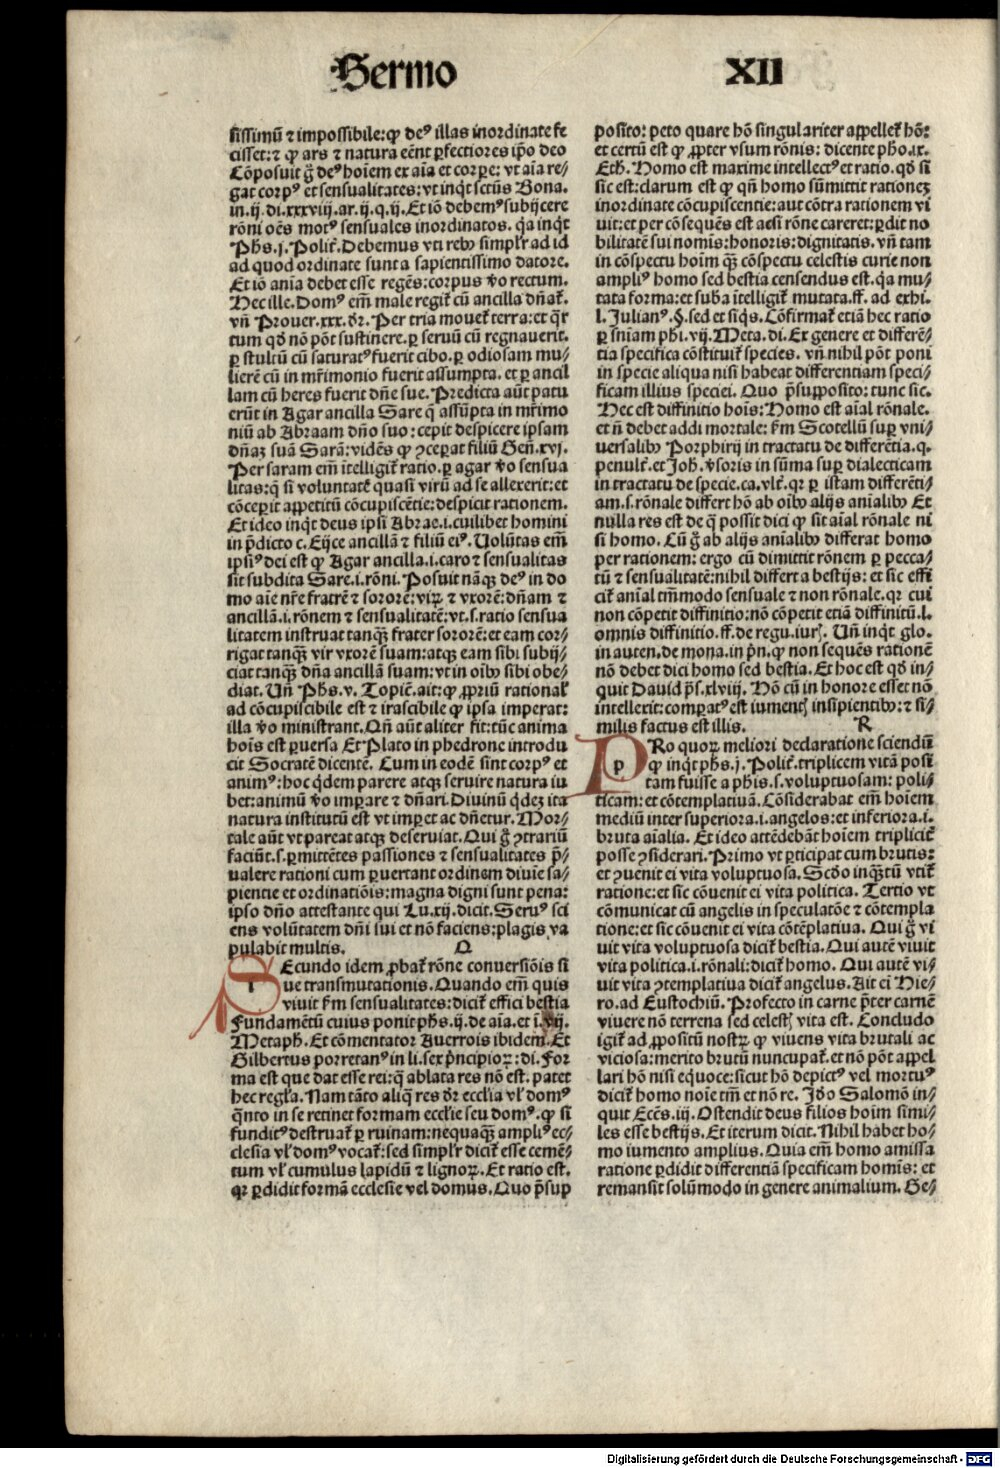 Sermo XII
sissimū ⁊ impossibile: ꝙ deꝰ illas inordinate fe
cisset: ⁊ ꝙ ars ⁊ natura eēnt ꝑfectiores ip̄o deo
Cōposuit g̊ deꝰ hoīem ex aīa et corꝑe: vt aīa re-
gat corpꝰ et sensualitates: vt inq̇t sctūs Bona.
in.ij.di.xxxviij.ar.ij.q.ij. Et iō debemꝰ subijcere
rōni oēs motꝰ sensuales inordinatos. q̇a inq̇t
Phs.j.Polit̄. Debemus vti rebꝰ simpl̄r ad id
ad quod ordinate sunt a sapientissimo datore.
Et iō anīa debet esse regēs: corpus v̄o rectum.
Hec ille. Domꝰ em̄ male regit̄ cū ancilla dn̄at̄.
vn̄ Prouer.xxx.dr̄. Per tria mouet̄ terra: et q̄r
tum qd̄ nō pōt sustinere. ꝑ seruū cū regnauerit.
ꝑ stultū cū saturatꝰ fuerit cibo. ꝑ odiosam mu/
lierē cū in mr̄imonio fuerit assumpta. et ꝑ ancil
lam cū heres fuerit dn̄e sue. Predicta aūt patu
erūt in Agar ancilla Sare q̄ assūpta in mr̄imo
niū ab Abraam dn̄o suo: cepit despicere ipsam
dn̄aꝫ suā Sarā: vidēs ꝙ ꝯceꝑat filiū Gen̄.xvj.
Per saram em̄ ītelligit̄ ratio. ꝑ agar v̄o sensua
litas: q̄ si voluntatē quasi virū ad se allexerit: et
cōceꝑit appetitū cōcupiscētie: despicit rationem.
Et ideo inq̇t deus ipsi Abrae.i.cuilibet homini
in p̄dicto c. Eijce ancillā ⁊ filiū eiꝰ. Uolūtas em̄
ipsiꝰ dei est ꝙ Agar ancilla.i.caro ⁊ sensualitas
sit subdita Sare.i.rōni. Posuit nāqꝫ deꝰ in do
mo aīe nr̄e fratrē ⁊ sororē: virū ⁊ vxorē: dn̄am ⁊
ancillā.i.rōnem ⁊ sensualitatē: vt.s.ratio sensua
litatem instruat tanqꝫ frater sororē: et eam cor/
rigat tanqꝫ vir vxorē suam: atqꝫ eam sibi subij/
ciat tanqꝫ dn̄a ancillā suam: vt in oībꝰ sibi obe/
diat. Un̄ Phs.v. Topic̄.ait: ꝙ ꝓpriū rational̄
ad cōcupiscibile est ⁊ irascibile ꝙ ipsa imperat:
illa v̄o ministrant. Qn̄ aūt aliter fit: tūc anima
hoīs est ꝑuersa Et Plato in phedrone introdu
cit Socratē dicentē. Cum in eodē sint corpꝰ et
animꝰ: hoc q̇dem parere atqꝫ seruire natura iu
bet: animū v̄o imꝑare ⁊ dn̄ari. Diuinū q̇deꝫ ita
natura institutū est vt imꝑet ac dn̄etur. Mor/
tale aūt vt pareat atqꝫ deseruiat. Qui g̊ ꝯtrariū
faciūt.s.ꝑmittētes passiones ⁊ sensualitates p̄/
ualere rationi cum ꝑuertant ordinem diuīe sa/
pientie et ordinatiōis: magna digni sunt pena:
ipso dn̄o attestante qui Lu.xij.dicit. Seruꝰ sci
ens volūtatem dn̄i sui et nō faciens: plagis va
pulabit multis. Q
SEcundo idem ꝓbat̄ rōne conversiōis si
ue transmutationis. Quando em̄ quis
viuit ẜm sensualitates: dicit̄ effici bestia
Fundamētū cuius ponit phs.ij.de aīa.et ī.vij.
Metaph. Et cōmentator Auerrois ibidem. Et
Gilbertus porretanꝰ in li.sex p̄ncipioꝝ: di. For
ma est que dat esse rei: q̄ ablata res nō est. patet
hec regl̄a. Nam tāto aliq̄ res dr̄ ecclīa vl̄ domꝰ
q̇nto in se retinet formam ecclīe seu domꝰ. ꝙ si
funditꝰ destruat̄ ꝑ ruinam: nequaqꝫ ampliꝰ ec/
clesia vl̄ domꝰ vocat̄: sed simpl̄r dicit̄ esse cemē/
tum vl̄ cumulus lapidū ⁊ lignoꝝ. Et ratio est.
qꝛ ꝑdidit formā ecclesie vel domus. Quo p̄sup
posito: peto quare hō singulariter appellet̄ hō:
et certū est ꝙ ꝓpter vsum rōnis: dicente pho.ix.
Eth. Homo est maxime intellectꝰ et ratio. qd̄ si
sic est: clarum est ꝙ qn̄ homo sūmittit rationeꝫ
inordinate cōcupiscentie: aut cōtra rationem vi
uit: et per cōsequēs est acsi rōne careret: ꝑdit no
bilitatē sui nomīs: honoris: dignitatis. vn̄ tam
in cōspectu hoīm qꝫ cōspectu celestis curie non
ampliꝰ homo sed bestia censendus est. q̇a mu/
tata forma: et suba ītelligit̄ mutata. ff. ad exhi.
l. Julianꝰ. §. sed et siq̇s. Cōfirmat̄ etiā hec ratio
ꝑ sn̄iam phi.vij. Meta. di. Ex genere et differē/
tia specifica cōstituit̄ species. vn̄ nihil pōt poni
in specie aliqua nisi habeat differentiam speci/
ficam illius speciei. Quo p̄supposito: tunc sic.
Hec est diffinitio hoīs: Homo est aīal rōnale.
et n̄ debet addi mortale: ẜm Scotellū suꝑ vni/
uersalibꝰ Porphirij in tractatu de differētia. q.
penult̄. et Joh. v̄soris in sūma suꝑ dialecticam
in tractatu de specie.ca.vlt̄. qꝛ ꝑ istam differēti/
am.s.rōnale differt hō ab oībꝰ alijs anīalibꝰ Et
nulla res est de q̄ possit dici ꝙ sit aīal rōnale ni
si homo. Cū g̊ ab alijs anīalibꝰ differat homo
per rationem: ergo cū dimittit rōnem ꝑ pecca/
tū ⁊ sensualitatē: nihil differt a bestijs: et sic effi
cit̄ anīal tm̄modo sensuale ⁊ non rōnale. qꝛ cui
non cōpetit diffinitio: nō cōpetit etiā diffinitū. l.
omnis diffinitio. ff. de regu. iur̄. Un̄ inq̇t glo.
in auten. de mona. in p̄n. ꝙ non sequēs rationē
nō debet dici homo sed bestia. Et hoc est qd̄ in/
quit David ps̄.xlviij. Hō cū in honore esset nō
intellexit: comꝑatꝰ est iument̄ insipientibꝰ: ⁊ si/
milis factus est illis. R
PRo quoꝝ meliori declaratione sciendū
ꝙ inq̇t phs.j. Polit̄. triplicem vitā posi
tam fuisse a phis.s.voluptuosam: poli/
ticam: et cōtemplatiuā. Cōsiderabāt em̄ hoīem
mediū inter superiora.i.angelos: et inferiora.i.
bruta aīalia. Et ideo attēdebāt hoīem triplicit̄
posse ꝯsiderari. Primo vt ꝑticipat cum brutis:
et ꝯuenit ei vita voluptuosa. Scd̄o inqꝫtū vtit̄
ratione: et sic cōuenit ei vita politica. Tertio vt
cōmunicat cū angelis in speculatōe ⁊ cōtempla
tione: et sic cōuenit ei vita cōtēplatiua. Qui g̊ vi
uit vita voluptuosa dicit̄ bestia. Qui autē viuit
vita politica.i.rōnali: dicit̄ homo. Qui autē vi/
uit vita ꝯtemplatiua dicit̄ angelus. Ait ei Hie/
ro. ad Eustochiū. Profecto in carne p̄ter carnē
viuere nōn terrena sed celest̄ vita est. Concludo
igit̄ ad ꝓpositū nostꝝ ꝙ viuens vita brutali ac
viciosa: merito brutū nuncupat̄. et nō pōt appel
lari hō nisi eq̇uoce: sicut hō depictꝰ vel mortuꝰ
dicit̄ homo noīe tm̄ et nō re. Jdō Salomō in/
quit Eccs̄.iij. Ostendit deus filios hoīm simi/
les esse bestijs. Et iterum dicit. Nihil habet ho/
mo iumento amplius. Quia em̄ homo amissa
ratione ꝑdidit differentiā specificam homīs: et
remansit solūmodo in genere animalium. Ge/
Digitalisierung gefördert durch die Deutsche Forschungsgemeinschaft - DFG